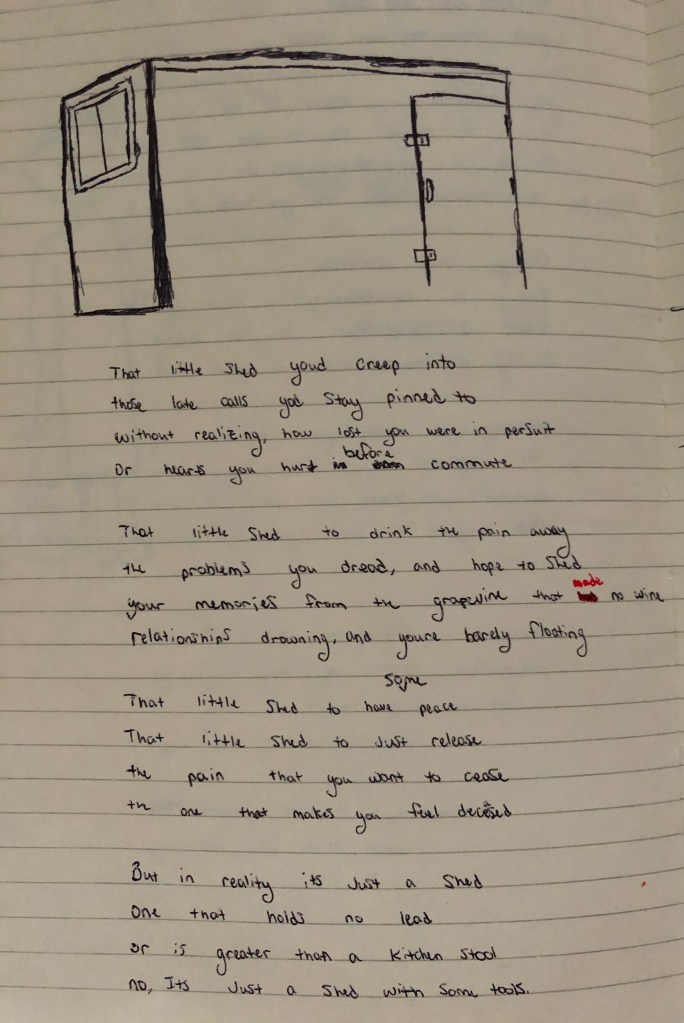 That little Shed youd Creep into
those late calls yod Stay pinned to
without realizing, how lost you were in persuit
Or hearts you hurt before commute
That little Shed to drink the pain away
the problems you dread, and hope to Shed
your memories from the grapevine that made no wine
relationships drowning, and youre barely floating
That little Shed to have some peace
That little Shed to Just release
the pain that you want to cease
the one that makes you feel decesed
But in reality its Just a Shed
One that holds no lead
or is greater than a Kitchen Stool
no, Its Just a Shed with Some tools.